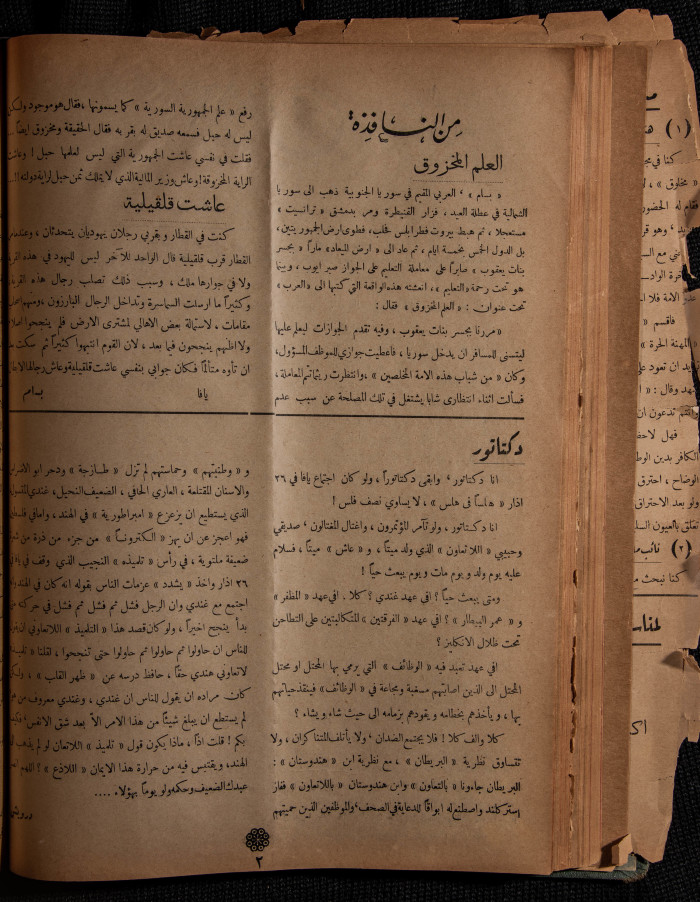 من النافذة
العلم المخزوق
« بسام » ، العربي المقيم في سوريا الجنوبية ذهب الى سوريا
الشمالية في عطلة العيد ، فزار القنيطرة ومر بدمشق « ترانسيت »
مستعجلا ، ثم هبط بيروت فطرابلس فحلب ، فطوى ارض الجمهوريتين ،
بل الدول الخمس بخمسة ايام ، ثم عاد الى « ارض الميعاد » ماراً « بجسر
بنات يعقوب » صابراً على معاملة التعليم على الجواز صبر ايوب ، وبينما
هو تحت رحمة « التعليم » ، انعشته هذه الواقعة التي كتبها الى « العرب »
تحت عنوان : « العلم المخزوق » فقال :
« مررنا بجسر بنات يعقوب ، وفيه تقدم الجوازات ليعلم عليها
ليتسنى للمسافر ان يدخل سوريا ، فاعطيت جوازي للموظف المسؤول ،
وكان « من شباب هذه الامة المخلصين » ، وانتظرت ريثما تتم المعاملة ،
فسألت اثناء انتظاري شابا يشتغل في تلك المصلحة عن سبب عدم
رفع « علم الجمهورية السورية » كما يسمونها ، فقال هو موجود ولكن
ليس له حبل فسمعه صديق له بقربه فقال الحقيقة ومخزوق ايضاً ...
فقلت في نفسي عاشت الجمهورية التي ليس لعلمها حبل ! وعاشت
الراية المخزوقة ! وعاش وزير المالية الذي لا يملك ثمن حبل لراية دولته !..
عاشت قلقيلية
كنت في القطار وبقربي رجلان يهوديان يتحدثان ، وعندما
القطار قرب قلقيلية قال الواحد للآخر ليس لليهود في هذه
ولا في جوارها ملك ، وسبب ذلك تصلب رجال هذه
وكثيراً ما ارسلت السماسرة وتداخل الرجال البارزون ،
مقامات ، لاستمالة بعض الاهالي لمشترى الارض فلم ينجحوا
ولا اظنهم ينجحون فيما بعد ، لان القوم انتبهوا كثيراً ثم سكت
ان تأوه متألماً فكان جوابي بنفسي عاشت قلقيلية وعاش رجالها
يافا بسام
دكتاتور
انا دكتاتور ، وابقى دكتاتوراً ، ولو كان اجتماع يافا في ٢٦
اذار « هلساً في هلس » ، لا يساوي نصف فلس !
انا دكتاتور ، ولو تآمر المؤتمرون ، واغتال المغتالون ، صديقي
وحبيبي « اللاتعاون » الذي ولد ميتاً ، و « عاش » ميتاً ، فسلام
عليه يوم ولد ويوم مات ويوم يبعث حياً !
ومتى يبعث حياً ؟ افي عهد غندي ؟ كلا . افي عهد « المظفر »
و « عمر البيطار » ؟ افي عهد « الفرقتين » المتكالبتين على التطاحن
تحت ظلال الانكليز ؟
افي عهد تعبد فيه « الوظائف » التي يرمي بها المحتل او محتل
المحتل الى الذين اصابتهم مسغبة ومجاعة في « الوظائف » فينقذ حياتهم
بها ، ويأخذهم بخطامه ويقودهم بزمامه الى حيث شاء ويشاء ؟
كلا والف كلا ! فلا يجتمع الضدان ، ولا يأتلف المتناكران ، ولا
تتساوق نظرية « البريطان » ، مع نظرية ابن « هندوستان » :
البريطان جاءونا « بالتعاون » وابن هندوستان « باللاتعاون » ففاز
استركلند واصطنع له ابواقاً للدعاية في الصحف ، والموظفين الذين حميتهم
و « وطنيتهم » وحماستهم لم تزل « طازجة » ودحر ابو
والاسنان المقتلعة ، العاري الحافي ، الضعيف النحيل ، غندي
الذي يستطيع ان يزعزع « امبراطورية » في الهند ، واما في
فهو اعجز عن ان يهز « الكترونا » من جزء من ذرة من
ضعيفة ملتوية ، في رأس « تلميذه » النجيب الذي وقف في يافا في
٢٦ اذار واخذ « يشدد » عزمات الناس بقوله انه كان في الهند
اجتمع مع غندي وان الرجل فشل ثم فشل ثم فشل في حركته
بدأ ينجح اخيراً ، ولو كان قصد هذا « التلميذ » اللاتعاوني ان
للناس ان حاولوا ثم حاولوا ثم حاولوا حتى تنجحوا ، لقلنا
لاتعاوني هندي حقاً ، حافظ درسه عن « ظهر القلب » ،
كان مراده ان يقول للناس ان غندي ، وغندي معروف من
لم يستطع ان يبلغ شيئاً من هذا الامر الا بعد شق الانفس ،
بكم ! قلت اذاً ، ماذا يكون قول « تلميذ » اللاتعاون لو لم يذهب
الهند ، ويقتبس فيه من حرارة هذا الايمان « اللاذع » ! اللهم
عبدك الضعيف وحكمه ولو يوماً بهؤلاء ....
٢
(١)
كنا في
« مخلوق » ،
فقام له الحضور
(٢)
كنا نبحث